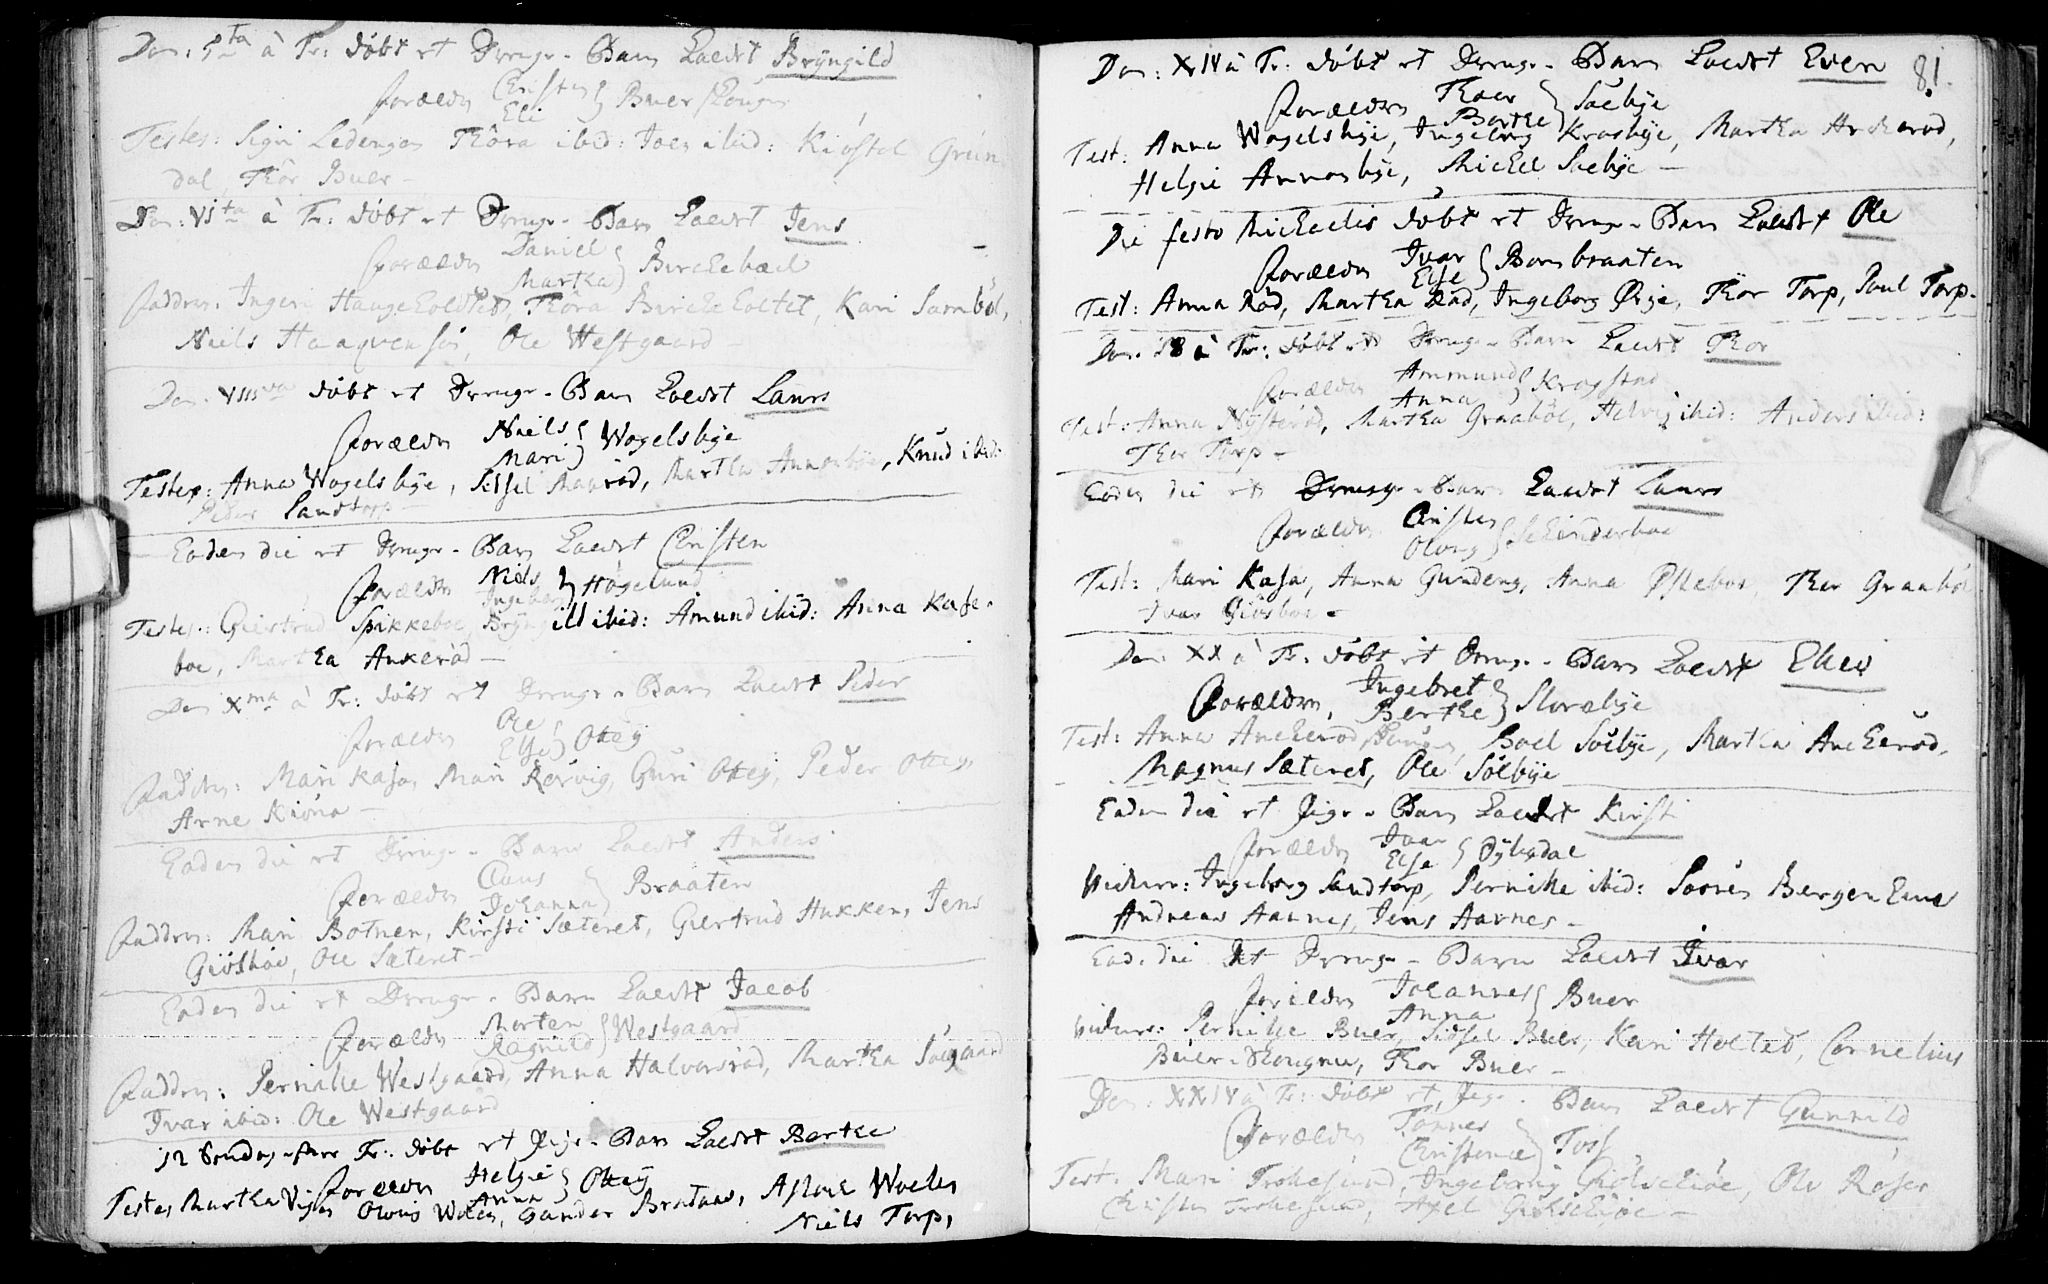 Dom: 5ta à Tr: døbt et Drenge-Barn kaldt Bryngild
Forældre Christen Eli } Buer
Testes: Signi Ledengen Thora ibid: Joen ibid: Kiøstol Grün
dal, Thor Buer —
Dom: VIta à Tr: døbt et Drenge-Barn kaldt Jens
Forældre Daniel Martha } Birchebæch
Faddere: Ingeri Haugeholdtet, Thora Bircheholtet, Kari Sarnbøl,
Niels Haaqvensøn, Ole Westgaard —
Dom. VIIIva døbt et Drenge-Barn kaldt Laurs
Forældre Niels Mari } Wogelsbye
Testes: Anna Wogelsbye, Sidsel Maarød, Martha Annonbye, Knud ibid:
Peder Sandtorp —
Eadem die et Drenge-Barn kaldt Christen
Forældre Niels Ingebor } Høgelund
Testes: Giertrud Spikkeboe, Bryngild ibid: Amund ibid: Anna Kase-
boe, Martha Ankerød —
Dom Xma à Tr: døbt et Drenge-Barn kaldt Peder
Forældre Ole Else } Ottey
Faddere: Mari Kasa, Mari Rørvig, Guri Ottey, Peder Ottey,
Arne Kiøna —
Eadem die et Drenge-Barn kaldt Anders
Forældre Claus Johanna } Braaten
Faddere: Mari Botnen, Kirsti Sæteret, Giertrud Hukken, Jens
Giøsboe, Ole Sæteret —
Eadem die et Drenge-Barn kaldt Jacob
Forældre Morten Ragnild } Westgaard
Faddere: Pernille Westgaard, Anna Halvorsrød, Martha Søegaard
Ivar ibid: Ole Westgaard
12 Søndag efter Tr: døbt et Pige-Barn kaldt Berthe
Forældre Helge Anna } Ottey
Testes Martha Olong Wolen, Gunder Braten, Aslach Wolen
Niels Torp,
81.
Dom: XIV à Tr: døbt et Drenge-Barn kaldt Even
Forældre Thoer Berthe } Søebye
Test: Anna Wogelsbye, Ingeborg Krosbye, Martha Ancherød,
Helge Annonbye, Michel Søebye —
Die festo Michaelis døbt et Drenge-Barn kaldt Ole
Forældre Ivar Else } Bombraaten
Test: Anna Rød, Martha Rød, Ingeborg Ørje, Thor Torp, Poul Torp.
Dom. 18 à Tr: døbt et Drenge-Barn kaldt Thor
Forældre Ammund Anna } Krogstad
Test: Anna Nysterød, Martha Graabøl, Helvig ibid: Anders ibid:
Thor Torp —
Eadem die et Drenge-Barn kaldt Laurs
Forældre Christen Olong } Schinderboe
Test: Mari Kasa, Anna Gundeng, Anna Østebøe, Thor Graabøl
Ivar Giøsboe —
Dom: XX à Tr: døbt et Drenge-Barn kaldt Elias
Forældre, Ingebret Berthe } Slorebye
Test: Anna Ancherød, Boel Søebye, Martha Ancherød,
Magnus Sæteret, Ole Sølbye
Eadem die et Pige-Barn kaldt Kirsti
Forældre Ivar Else } Dybedal
Vidner: Ingeborg Sandtorp, Pernille ibid: Søren
Andreas Aarnes, Jens Aarnes —
Ead. die et Drenge-Barn kaldt Ivar
Forældre Johannes Anna } Buer
Vidner: Pernille Buer, Sidsel Buer, Kari Holted, Cornelius
Buer-Skougen, Thor Buer —
Dom: XXIV à Tr: døbt et Pige-Barn kaldt Gunnild
Forældre Tønnes Christence } Toss
Test: Mari Trohesund, Ingeborg Giølschiøe, Ole Røser
Christen Trohesund, Axel Giølschiøe —